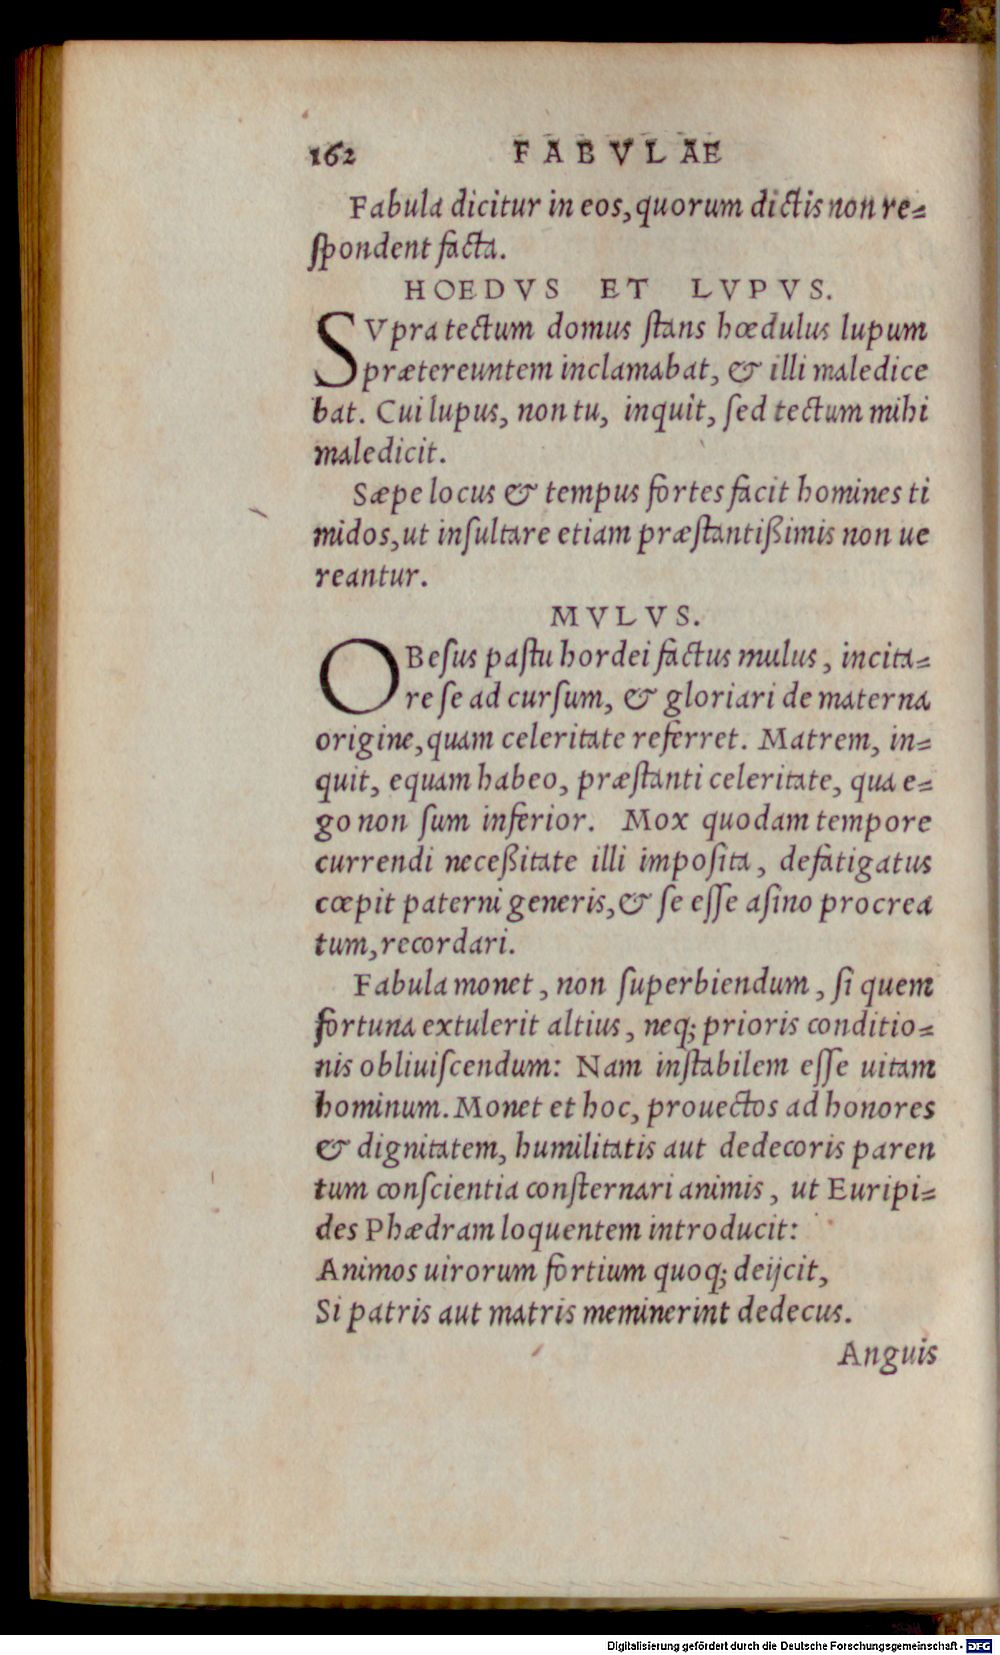 162 FABVLAE
Fabula dicitur in eos, quorum dictis non re=
ſpondent facta.
HOEDVS ET LVPVS.
SVpra tectum domus ſtans hœdulus lupum
prætereuntem inclamabat, & illi maledice
bat. Cui lupus, non tu, inquit, ſed tectum mihi
maledicit.
Sæpe locus & tempus fortes facit homines ti
midos, ut inſultare etiam præſtantißimis non ue
reantur.
MVLVS.
OBeſus paſtu hordei factus mulus, incita=
re ſe ad curſum, & gloriari de materna
origine, quam celeritate referret. Matrem, in=
quit, equam habeo, præſtanti celeritate, qua e=
go non ſum inferior. Mox quodam tempore
currendi neceßitate illi impoſita, defatigatus
cœpit paterni generis, & ſe eſſe aſino procrea
tum, recordari.
Fabula monet, non ſuperbiendum, ſi quem
fortuna extulerit altius, neq; prioris conditio=
nis obliuiſcendum: Nam inſtabilem eſſe uitam
hominum. Monet et hoc, prouectos ad honores
& dignitatem, humilitatis aut dedecoris paren
tum conſcientia conſternari animis, ut Euripi=
des Phædram loquentem introducit:
Animos uirorum fortium quoq; deijcit,
Si patris aut matris meminerint dedecus.
Anguis
Digitalisierung gefördert durch die Deutsche Forschungsgemeinschaft - DFG